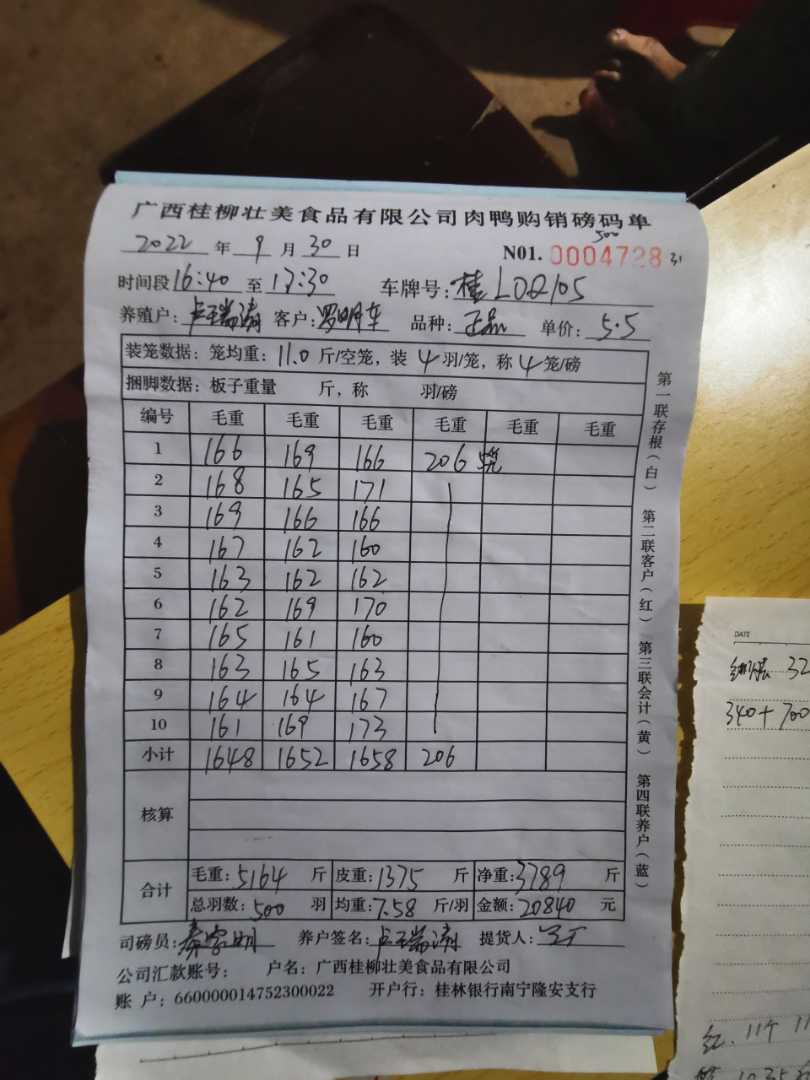 广西桂柳壮美食品有限公司肉鸭购销磅码单
2022 年 9 月 30 日 N01. 0004728 500 31
时间段 16:40 至 17:30 车牌号: 桂L0Q105
养殖户: 卢瑞涛 客户: 罗明车 品种: 正品 单价: 5.5
装笼数据: 笼均重: 11.0 斤/空笼, 装 4 羽/笼, 称 4 笼/磅
捆脚数据: 板子重量 斤, 称 羽/磅
编号 毛重 毛重 毛重 毛重 毛重 毛重
1 166 169 166 206
2 168 165 171
3 169 166 166
4 167 162 160
5 163 162 162
6 162 169 170
7 165 161 160
8 163 165 163
9 164 164 167
10 161 169 173
小计 1648 1652 1658 206
核算
合计
毛重: 5164 斤 皮重: 1375 斤 净重: 3789 斤
总羽数: 500 羽 均重: 7.58 斤/羽 金额: 20840 元
司磅员: 养户签名: 卢瑞涛 提货人:
公司汇款账号: 户名: 广西桂柳壮美食品有限公司
账 户: 660000014752300022 开户行: 桂林银行南宁隆安支行
第一联存根(白) 第二联客户(红) 第三联会计(黄) 第四联养户(蓝)
DATE
32
340+700
红. 11个 11